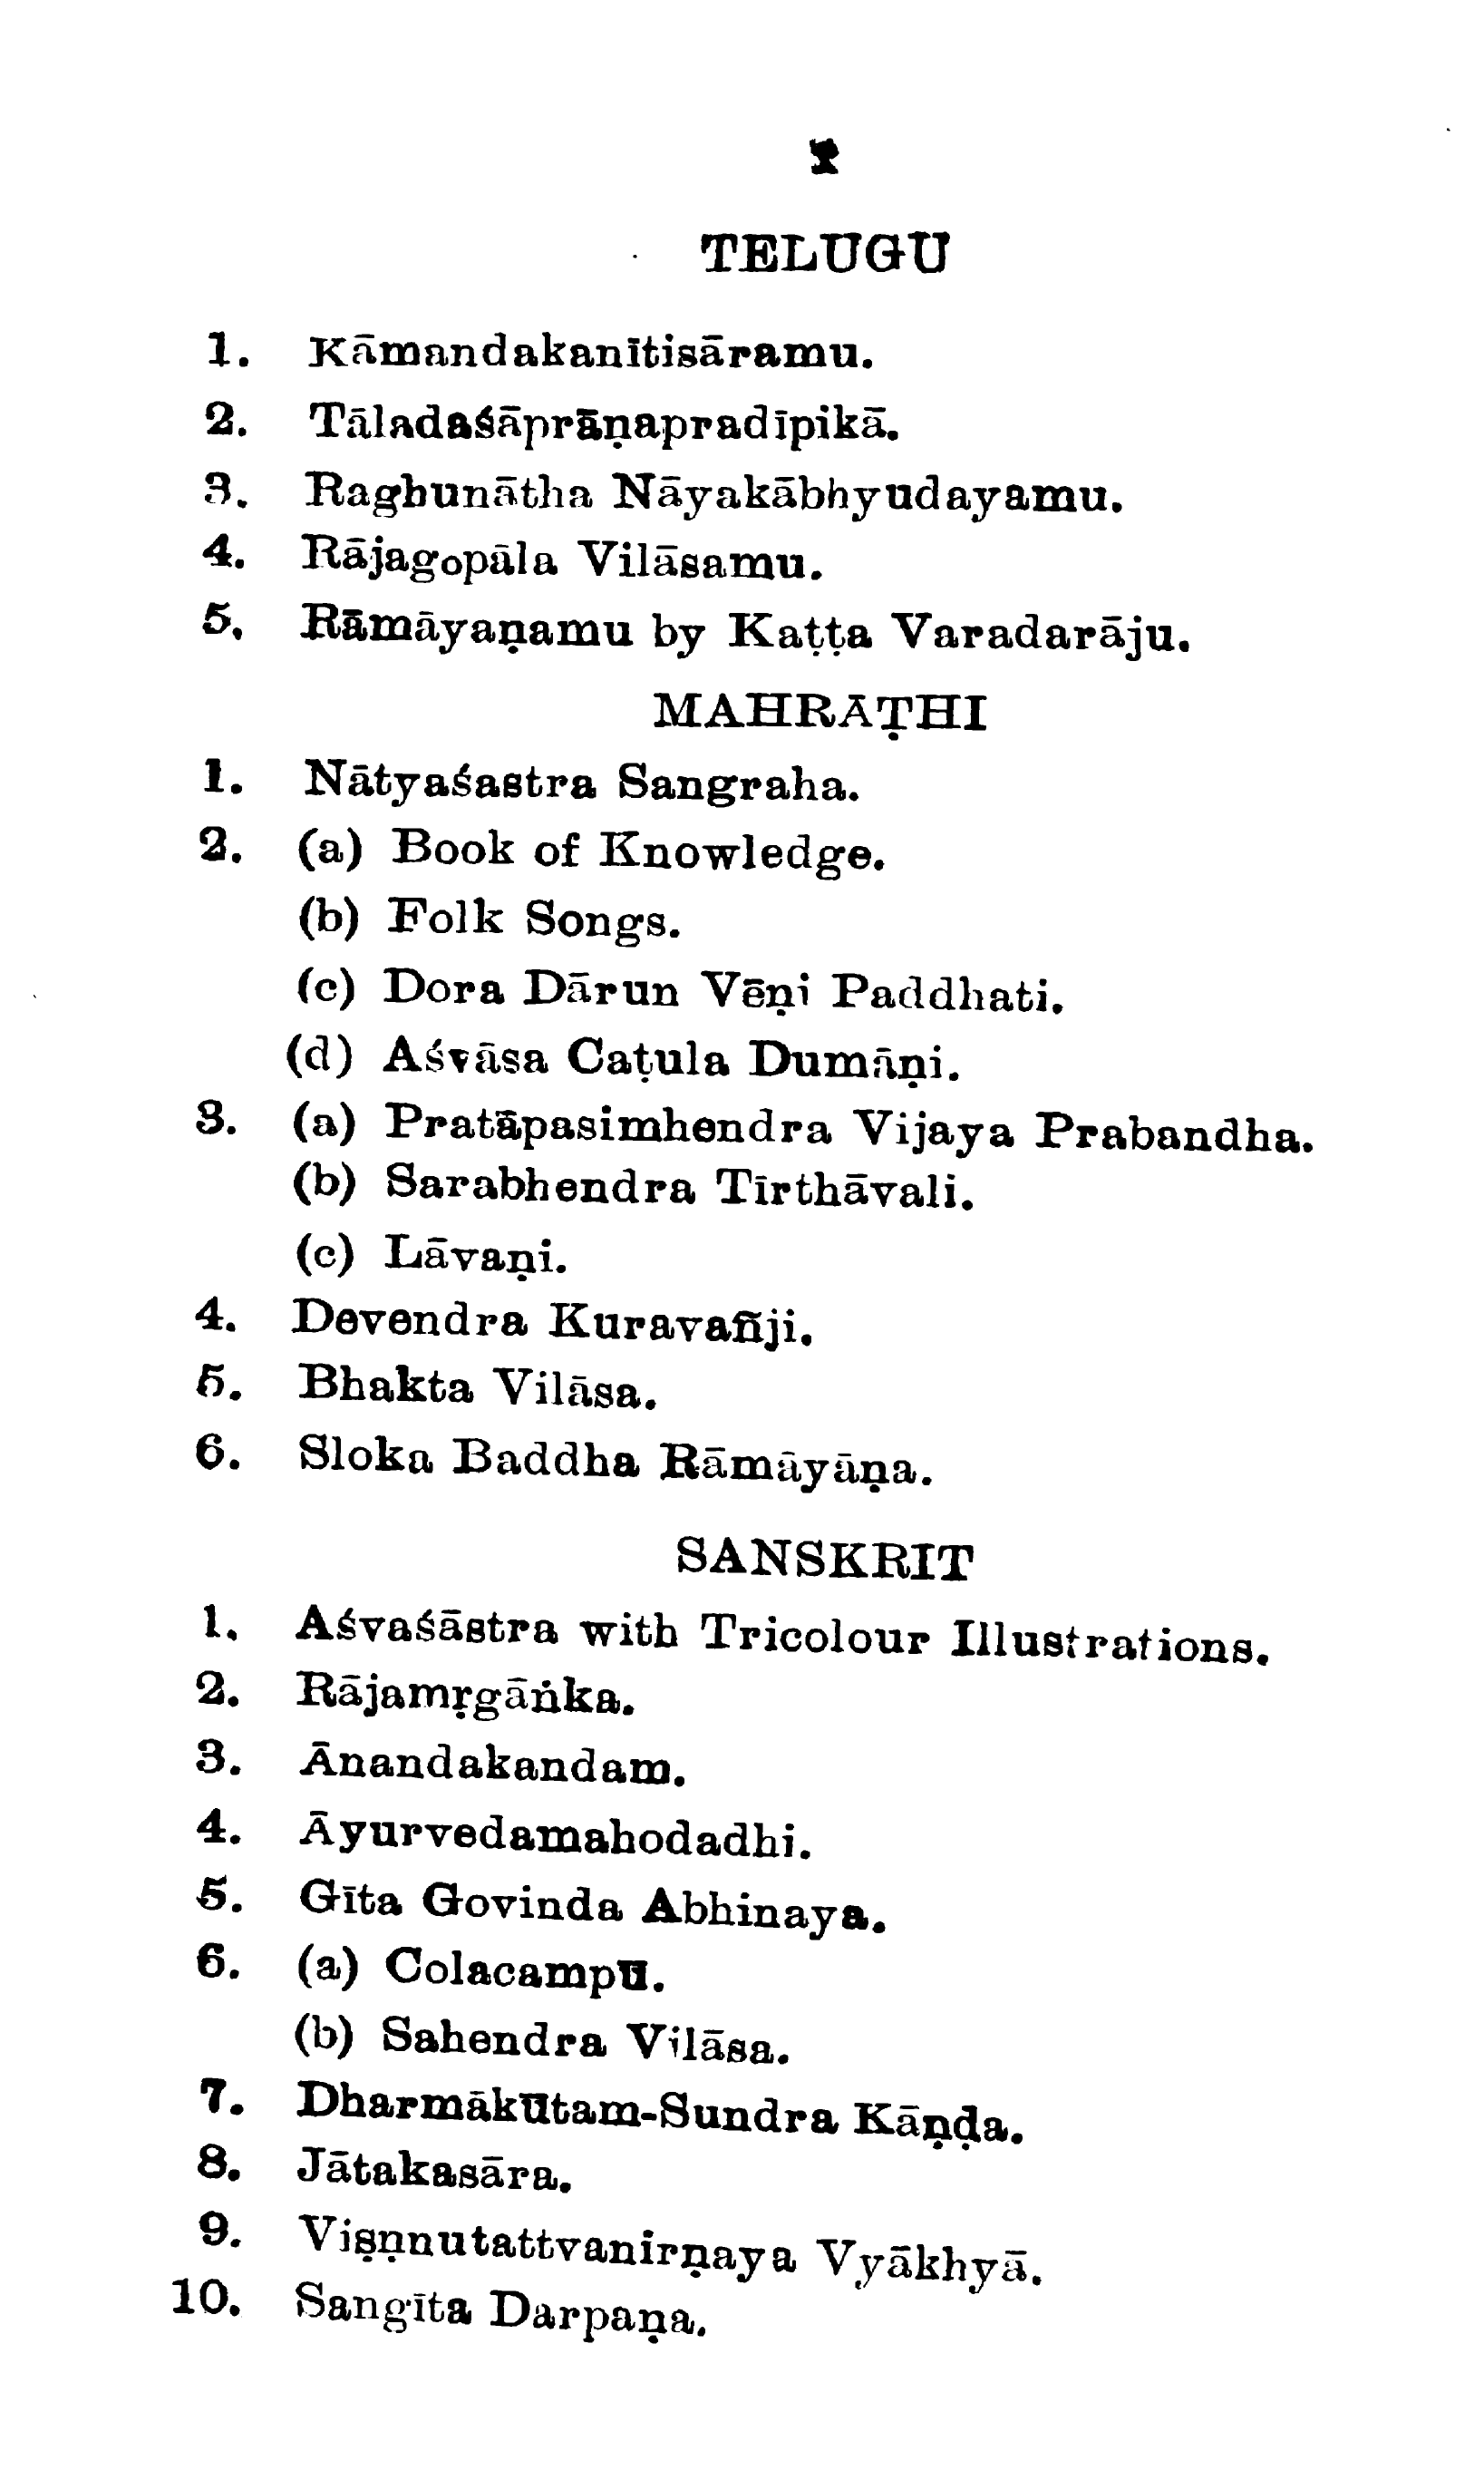 TELUGU
1. Kāmandakanītisāramu.
2. Tāladaśāprāṇapradīpikā.
3. Raghunātha Nāyakābhyudayamu.
4. Rājagopāla Vilāsamu.
5. Rāmāyaṇamu by Kaṭṭa Varadarāju.
MAHRĀṬHI
1. Nātyaśastra Sangraha.
2. (a) Book of Knowledge.
(b) Folk Songs.
(c) Dora Dārun Vēṇi Paddhati.
(d) Aśvāsa Caṭula Dumāṇi.
3. (a) Pratāpasimhendra Vijaya Prabandha.
(b) Sarabhendra Tīrthāvali.
(c) Lāvaṇi.
4. Devendra Kuravañji.
5. Bhakta Vilāsa.
6. Sloka Baddha Rāmāyāṇa.
SANSKRIT
1. Aśvaśāstra with Tricolour Illustrations.
2. Rājamṛgāṅka.
3. Ānandakandam.
4. Āyurvedamahodadhi.
5. Gīta Govinda Abhinaya.
6. (a) Colacampū.
(b) Sahendra Vilāsa.
7. Dharmākūtam-Sundra Kāṇḍa.
8. Jātakasāra.
9. Viṣṇnutattvanirṇaya Vyākhyā.
10. Sangīta Darpaṇa.